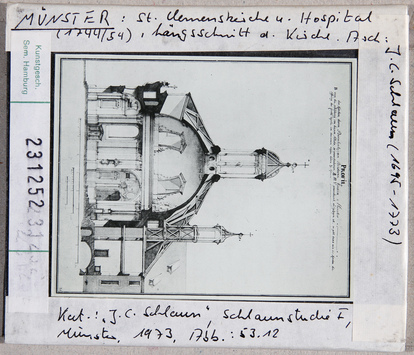 MÜNSTER: St. Clemenskirche u. Hospital
(1744/54), Längsschnitt d. Kirche. Arch:
J.C. Schlaun (1695-1773)
Kunstgesch.
Sem. Hamburg
231252
PROFIL
Kat.: "J.C. Schlaun", Schlaunstudie I,
Münster, 1973, Abb.: 53.12